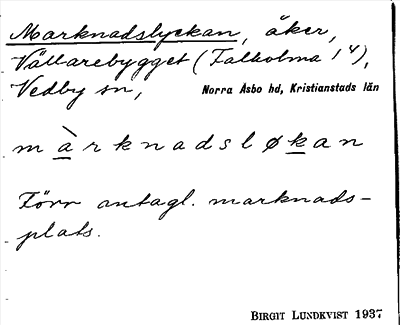 Marknadslyckan, åker,
Vållarebygget (Falholma 1⁴),
Vedby sn, Norra Åsbo hd, Kristianstads län
màrknadsløkan
Förr antagl. marknads-
plats.
BIRGIT LUNDKVIST 1937